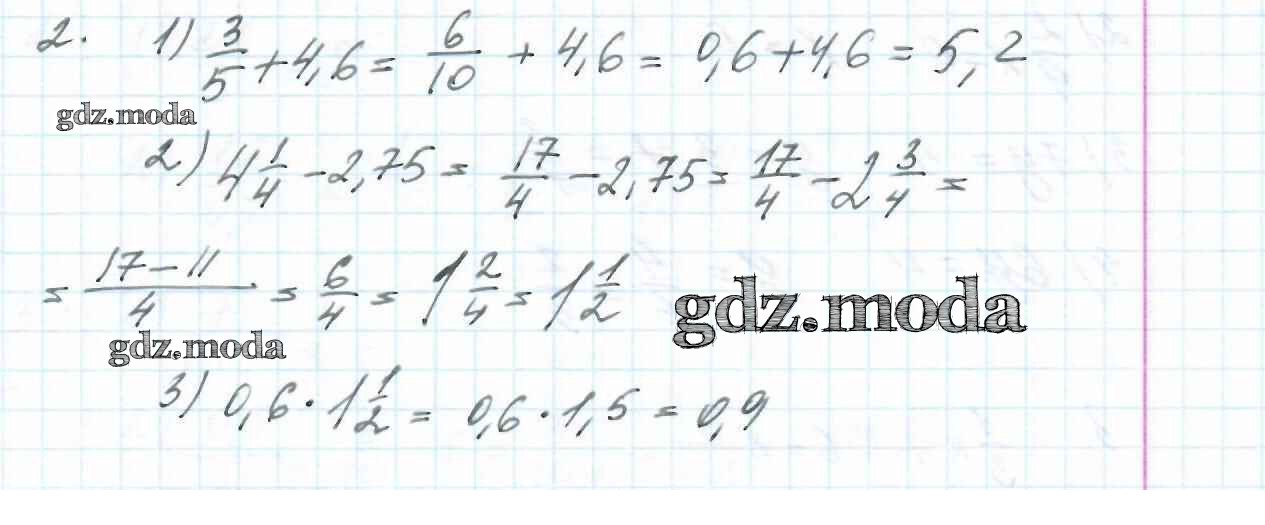 2. 1) 3/5 + 4,6 = 6/10 + 4,6 = 0,6 + 4,6 = 5,2
gdz.moda
2) 4 1/4 - 2,75 = 17/4 - 2,75 = 17/4 - 2 3/4 =
= (17 - 11)/4 = 6/4 = 1 2/4 = 1 1/2
gdz.moda
gdz.moda
3) 0,6 · 1 1/2 = 0,6 · 1,5 = 0,9